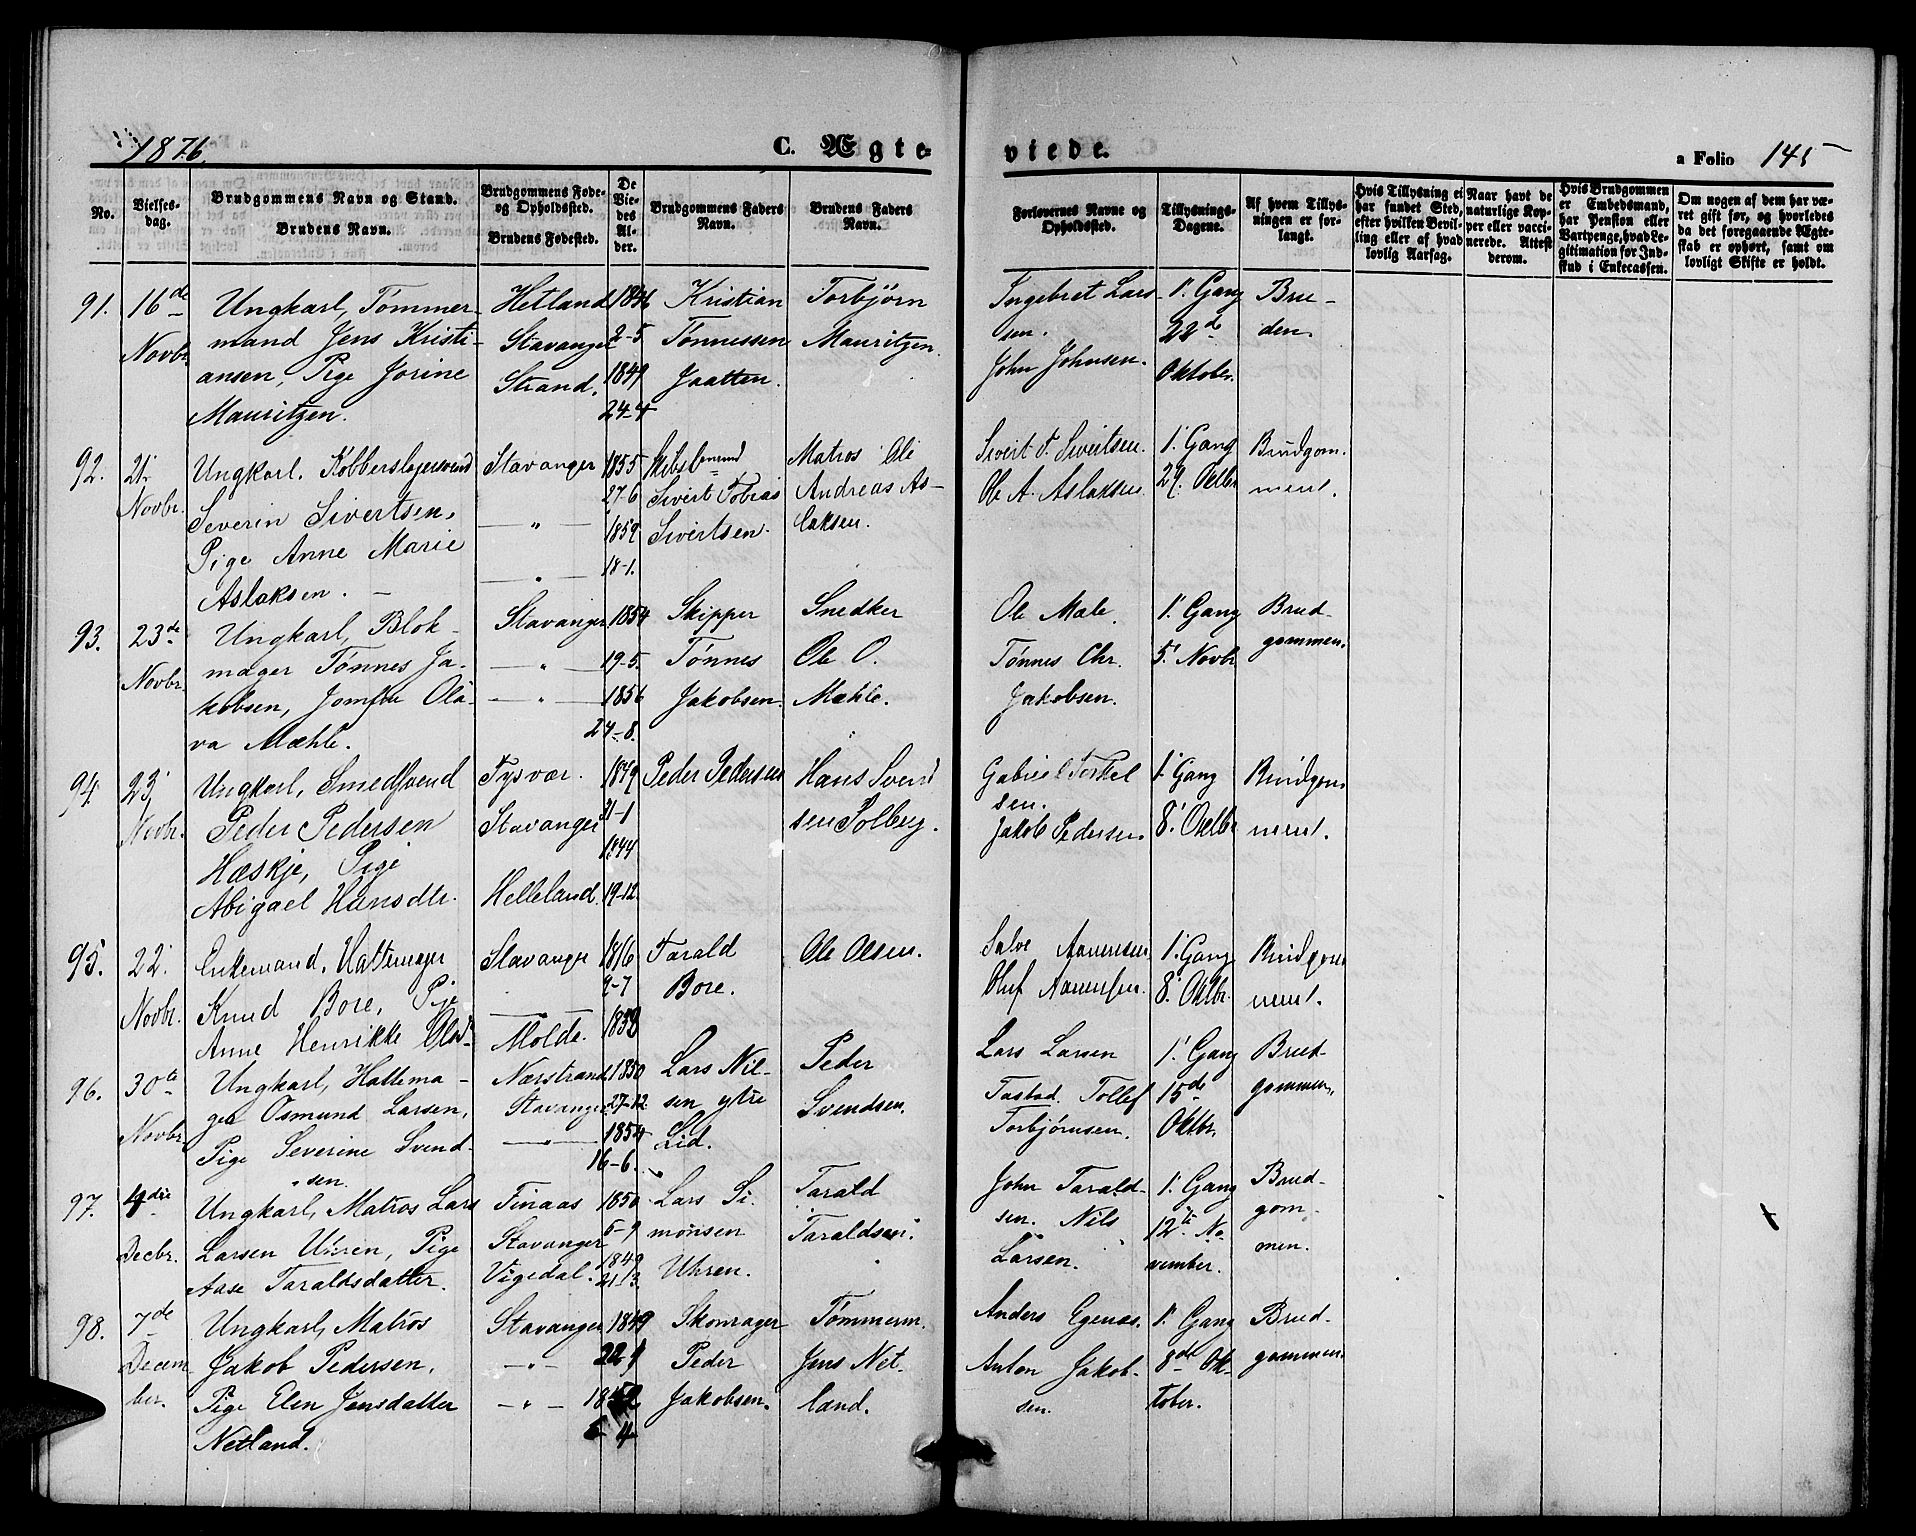 1876.
C. Ægte-
viede.
a Folio 145
No.
Vielses-
dag.
Brudgommens Navn og Stand.
Brudens Navn.
Brudgommens Føde-
og Opholdssted.
Brudens Fødested.
De
Vie-
des
Al-
der.
Brudgommens Faders
Navn.
Brudens Faders
Navn.
Forlovernes Navne og
Opholdssted.
Tillysnings-
Dagene.
Af hvem Tillys-
ningen er for-
langt.
Hvis Tillysning ei
har fundet Sted,
efter hvilken Bevil-
ling eller af hvad
lovlig Aarsag.
Naar havt de
naturlige Kop-
per eller vacci-
nerede. Attest
derom.
Hvis Brudgommen
er Embedsmand,
har Pension eller
Vartpenge, hvad Le-
gitimation for Ind-
skud i Enkecassen.
Om nogen af dem har væ-
ret gift før, og hvorledes
da det foregaaende Ægte-
skab er ophørt, samt om
lovligt Skifte er holdt.
91.
16de
Novbr
Ungkarl, Tømmer-
mand Jens Kristi-
ansen, Pige Jorine
Mauritzen.
Hetland
Stavanger
Strand.
1846
2-5
1849
24-4
Kristian
Tønnessen
Jaatten.
Torbjørn
Mauritzen.
Ingebret Lars-
sen.
John Johnsen.
1' Gang
22d
Oktober.
Bru-
den.
92.
21'
Novbr.
Ungkarl. Kobberslagersvend
Severin Sivertsen,
Pige Anne Marie
Aslaksen. -
Stavanger
- " -
- " -
1855
27-6
1859
18-1.
Sivert Tobias
Sivertsen.
Matros Ole
Andreas As-
laksen.
Sivert T. Sivertsen.
Ole A. Aslaksen
1' Gang
29. Oktbr
Brudgom-
men.
93.
23de
Novbr.
Ungkarl, Blok-
mager Tønnes Ja-
kobsen, Jomfru Ola-
va Mæhle.
Stavanger
- " -
- " -
1854
19-5.
1856
24-8.
Skipper
Tønnes
Jakobsen.
Snedker
Ole O.
Mæhle.
Ole Mæle.
Tønnes Chr.
Jakobsen.
1' Gang
5' Novbr
Brud-
gommen.
94.
23'
Novbr.
Ungkarl, Smedsvend
Peder Pedersen
Hæskje, Pige
Abigael Hansdtr.
Tysvær.
Stavanger
Helleland.
1849
31-1
1844
19-12.
Peder Pedersen
Hans Svend
sen Solberg.
Gabriel Torkel
sen.
Jakob Pedersen
1' Gang
8' Oktbr
Brudgom
men.
95.
22'
Novbr.
Enkemand, Hattemager
Knud Bore, Pige
Anne Henrikke Olsd
Stavanger
Molde.
1816
2-7
1832
Tarald
Bore.
Ole Olsen.
Salve Aanensen
Oluf Aanensen.
1' Gang
8' Oktbr.
Brudgom
men.
96.
30te
Novbr
Ungkarl, Hattema-
ger Osmund Larsen,
Pige Severine Svend-
sen.
Nærstrand
Stavanger
- " -
1850
27-12.
1854
16-6.
Lars Nil-
sen ytre
Lid.
Peder
Svendsen.
Lars Larsen
Tastad. Tollef
Torbjørnsen.
1' Gang
15de
Oktbr.
Brud-
gommen.
97.
4die
Decbr.
Ungkarl, Matros Lars
Larsen Uhren, Pige
Aase Taraldsdatter.
Finaas
Stavanger
Vigedal.
1850
5-9
1849
21/3.
Lars Si-
monsen
Uhren.
Tarald
Taraldsen.
John Tarald-
sen. Nils
Larsen.
1' Gang
12te No-
vember.
Brud-
gom-
men.
98.
7de
Decem
ber.
Ungkarl, Matros
Jakob Pedersen,
Pige Elen Jensdatter
Netland.
Stavanger
- " -
- " -
1849
22-9
1852
5-4
Skomager
Peder
Jakobsen.
Tømmerm.
Jens Net-
land.
Anders Egenæs.
Anton Jakob-
sen.
1' Gang
8de Ok-
tober.
Brud-
gommen.